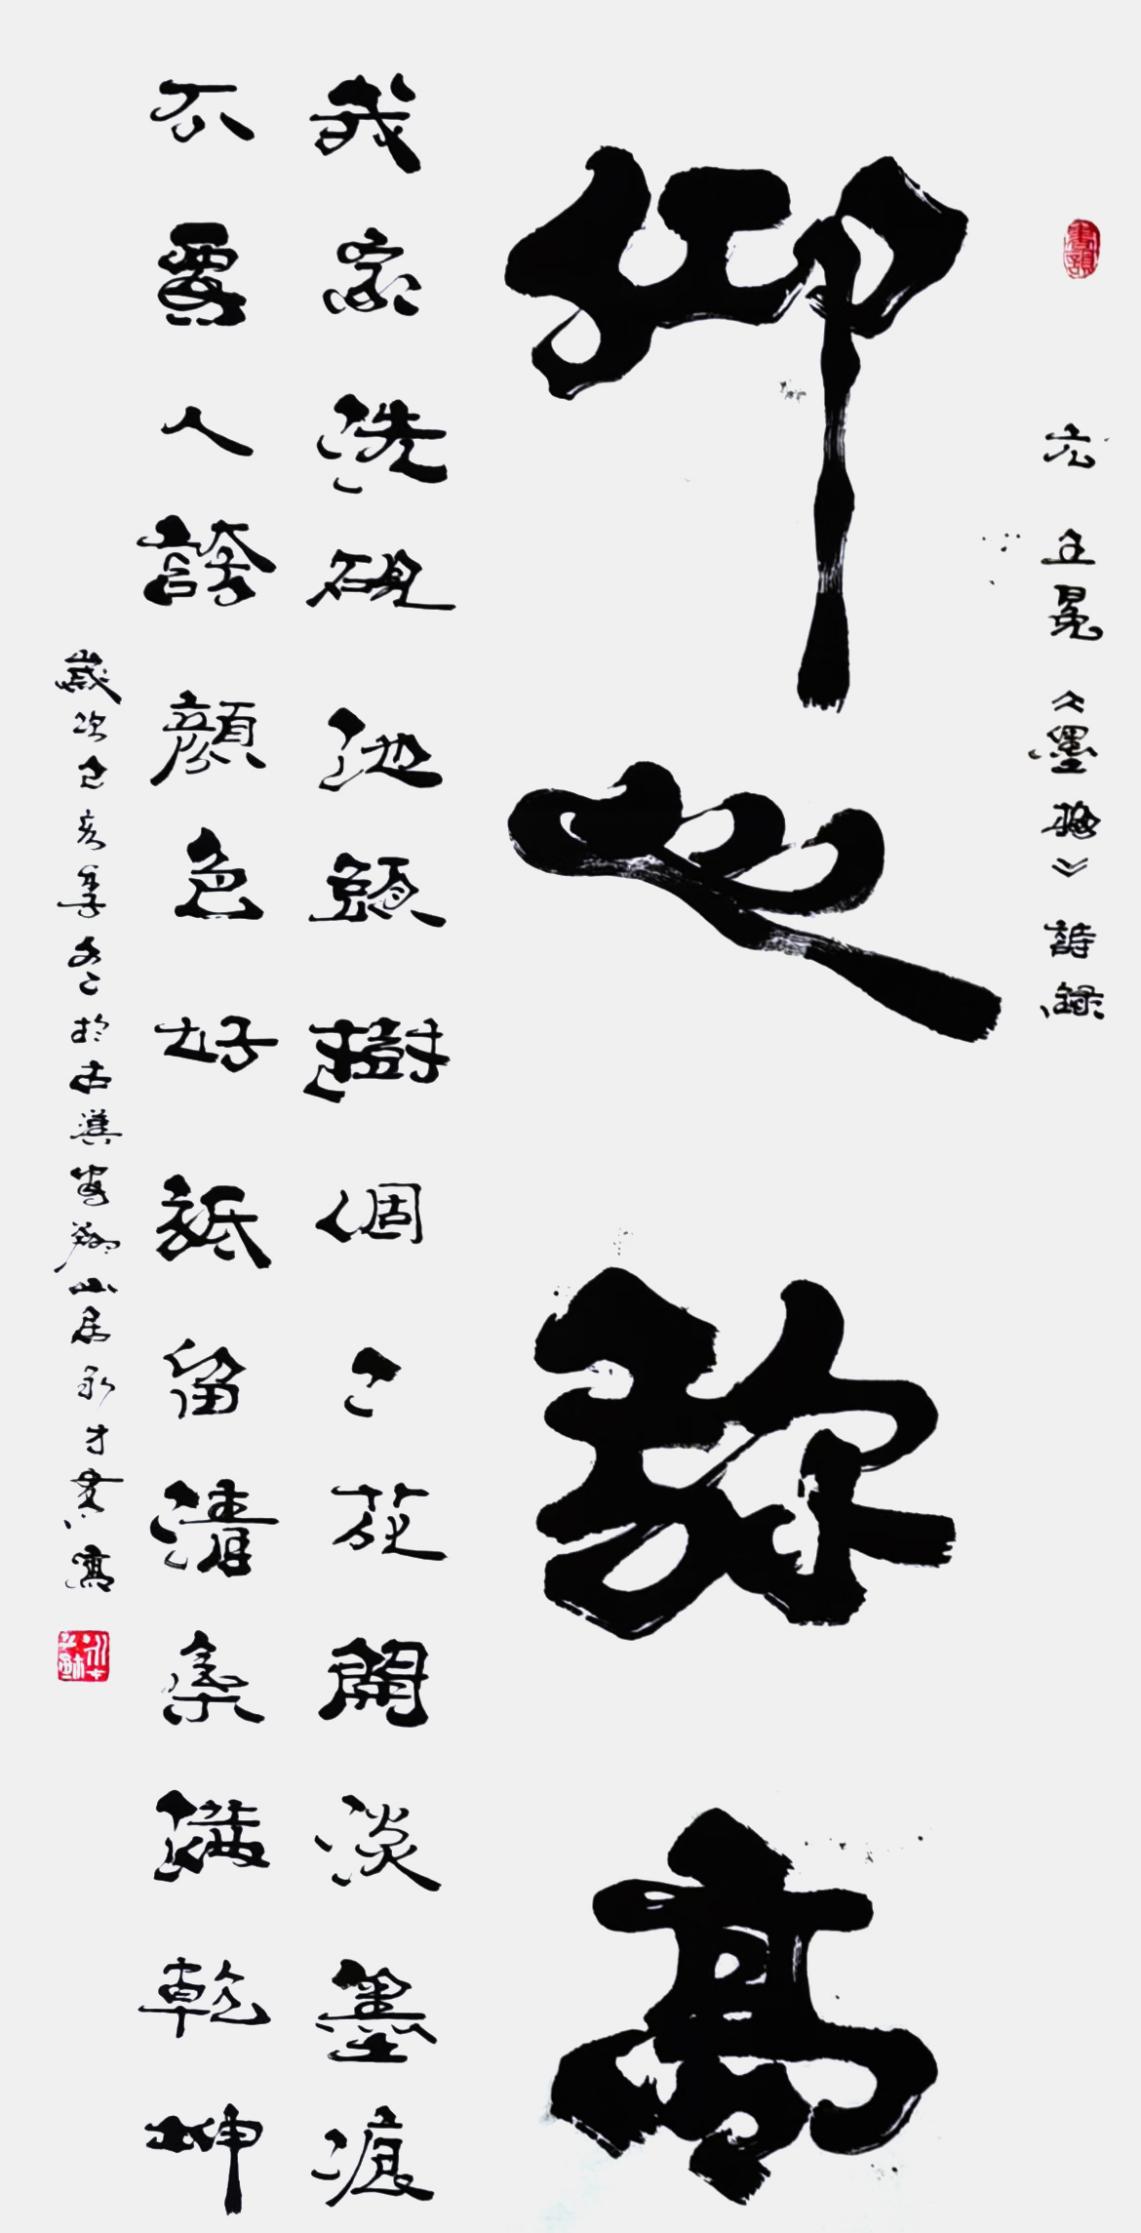 元 王冕《墨梅》詩錄
仰之弥高
我家洗硯池頭樹個々花開淡墨痕
不要人誇顏色好祇留清氣滿乾坤
歲次己亥季冬於古漢安翔山居永才書寫